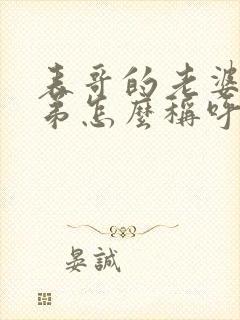 表哥的老婆
弟怎麼稱呼
晏誠